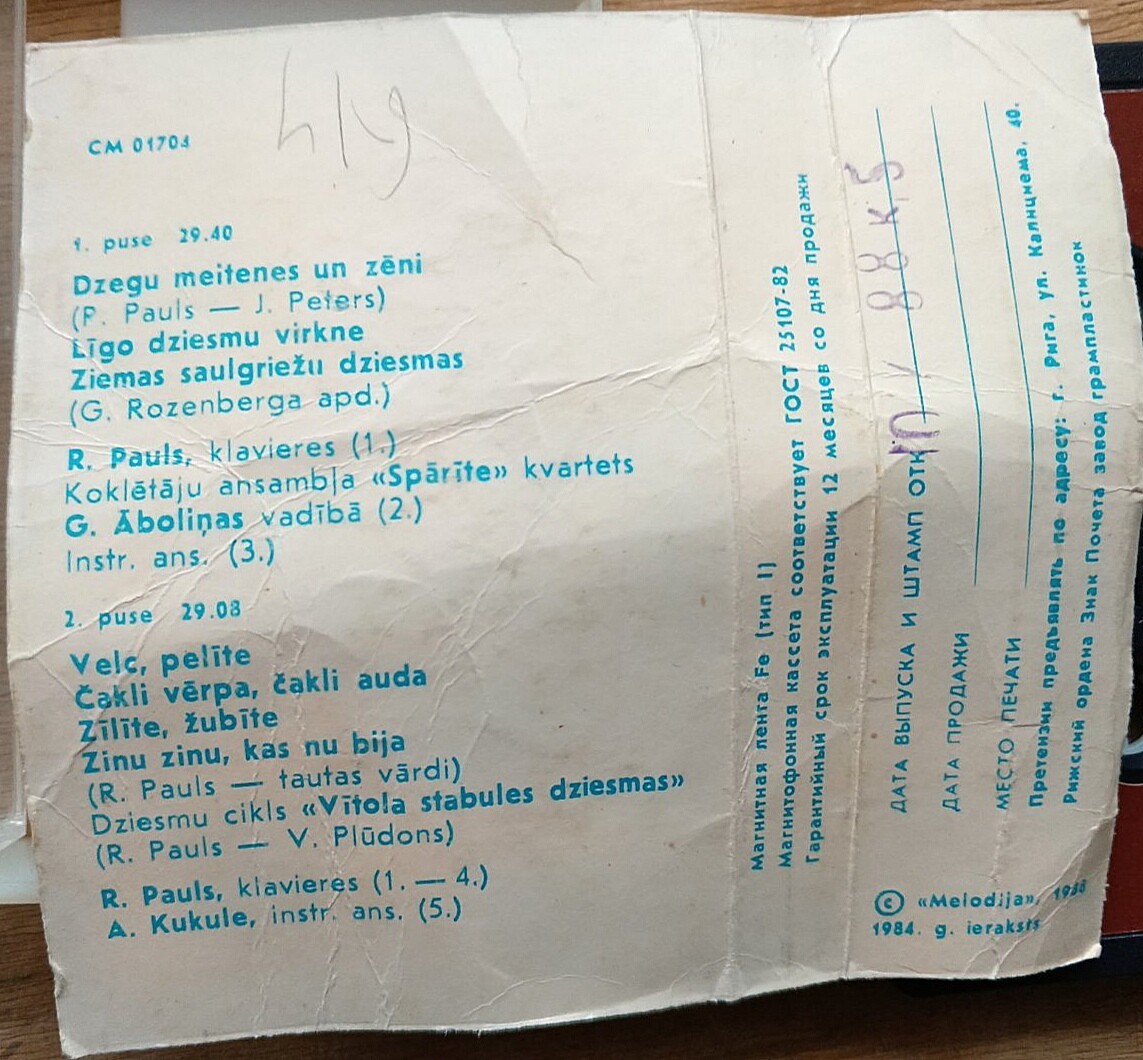 СМ 01704
1. puse 29.40
Dzegu meitenes un zēni
(R. Pauls — J. Peters)
Līgo dziesmu virkne
Ziemas saulgriežu dziesmas
(G. Rozenberga apd.)
R. Pauls, klavieres (1.)
Koklētāju ansambļa «Spārīte» kvartets
G. Āboliņas vadībā (2.)
Instr. ans. (3.)
2. puse 29.08
Velc, pelīte
Čakli vērpa, čakli auda
Zīlīte, žubīte
Zinu zinu, kas nu bija
(R. Pauls — tautas vārdi)
Dziesmu cikls «Vītola stabules dziesmas»
(R. Pauls — V. Plūdons)
R. Pauls, klavieres (1. — 4.)
A. Kukule, instr. ans. (5.)
Магнитная лента Fe (тип I)
Магнитофонная кассета соответствует ГОСТ 25107-82
Гарантийный срок эксплуатации 12 месяцев со дня продажи
ДАТА ВЫПУСКА И ШТАМП ОТК
ДАТА ПРОДАЖИ
МЕСТО ПЕЧАТИ
Претензии предъявлять по адресу: г. Рига, ул. Калнциема, 40.
Рижский ордена Знак Почета завод грампластинок
© «Melodija», 1988
1984. g. ieraksts